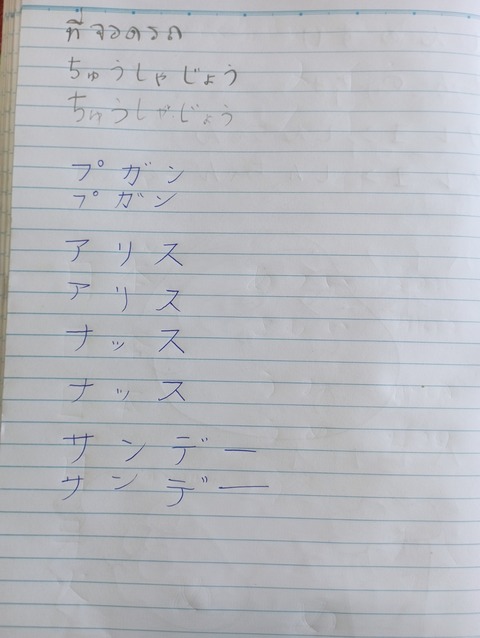 ที่จอดรถ
ちゅうしゃじょう
ちゅうしゃじょう
プガン
プガン
アリス
アリス
ナッス
ナッス
サンデー
サンデー